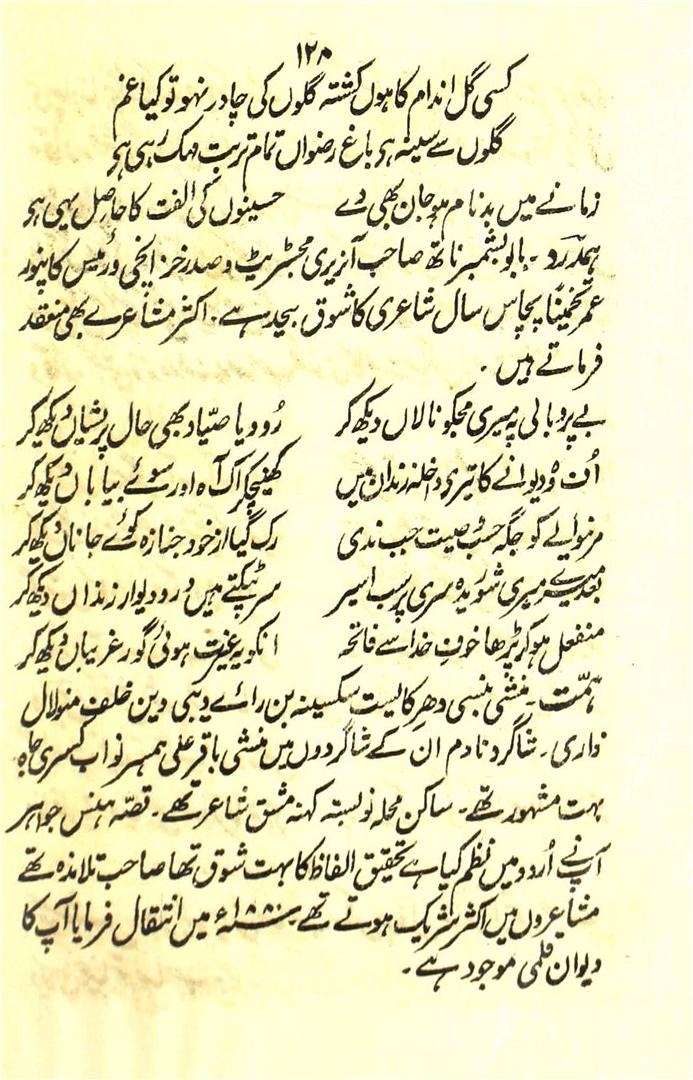 ۱۲۰
کسی گل اندام کا ہوں کشتہ گلوں کی چادر نہو تو کیا غم
گلوں سے سینہ ہی باغ رضواں تمام تربت مہک رہی ہی
زمانے میں بدنام ہو جان بھی دے حسینوں کی الفت کا حاصل یہی ہی
ہمدرد۔ بابو بشمبر ناتھ صاحب آنریری مجسٹریٹ و صدر خزانچی و رئیس کانپور
عمر تخمیناً پچاس سال شاعری کا شوق بیحد ہے۔ اکثر مشاعرے بھی منعقد
فرماتے ہیں۔
بے پر و بالی پہ میری مجکو نالاں دیکھ کر رو دیا صیّاد بھی حال پریشاں دیکھ کر
اُف وُ دیوانے کا تیری داخلہ زندان میں کھینچکر اک آہ اور سوئے بیاباں دیکھ کر
مرنیوالے کو جگہ حسب وصیت جب ندی رک گیا از خود جنازہ کوئے جاناں دیکھ کر
بعد میرے میری شوریدہ سری پر سب اسیر سر پٹکتے ہیں در و دیوار زنداں دیکھ کر
منفعل ہو کر پڑھا خوف خدا سے فاتحہ انکو یہ عبرت ہوئی گور غریباں دیکھ کر
ہمّت۔ منشی بنسی دھر کایست سکسینہ بن رائے دیبی دین خلف منولال
زواری۔ شاگرد نادم ان کے شاگردوں میں منشی باقر علی ہمسر نواب کسری جاہ
بہت مشہور تھے۔ ساکن محلہ نوبستہ کہنہ مشق شاعر تھے۔ قصّہ ہنس جواہر
آپ نے اُردو میں نظم کیا ہے تحقیق الفاظ کا بہت شوق تھا صاحب تلامذہ تھے
مشاعروں میں اکثر شریک ہوتے تھے ۱۸۸۰ء میں انتقال فرمایا آپ کا
دیوان قلمی موجود ہے۔